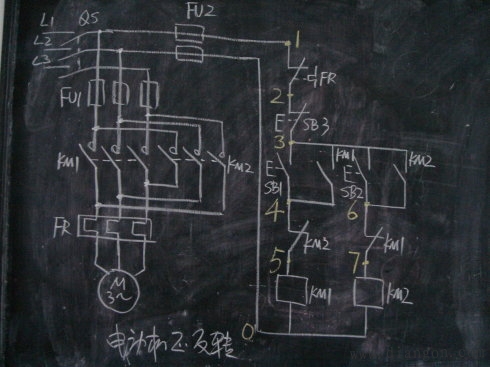 L1 QS FU2
L2
L3
1
FR
2
FU1
E SB3
3
KM1 KM2 KM1 KM2
E E
SB1 SB2
4 6
FR
KM2 KM1
5 7
M
3~
KM1 KM2
0
电动机正反转